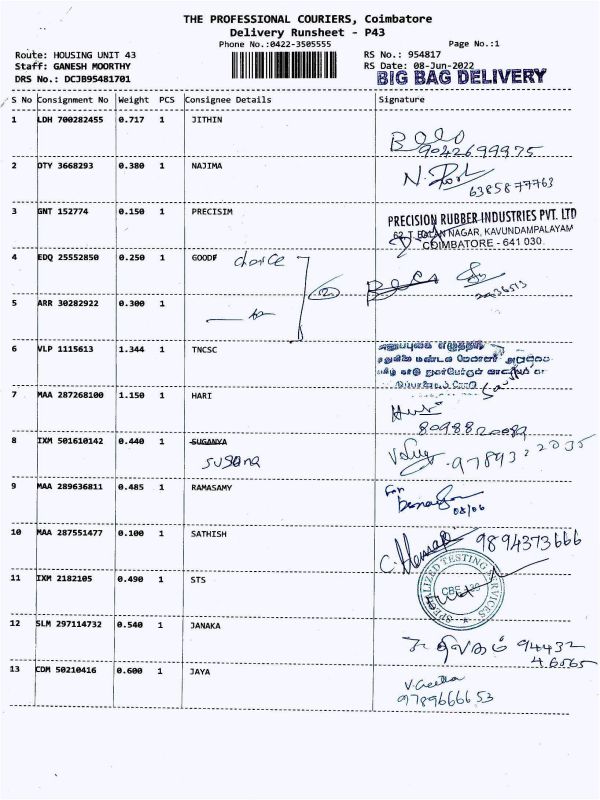 THE PROFESSIONAL COURIERS, Coimbatore
Delivery Runsheet - P43
Phone No.:0422-3505555
Page No.:1
Route: HOUSING UNIT 43
RS No.: 954817
Staff: GANESH MOORTHY
RS Date: 08-Jun-2022
DRS No.: DCJB95481701
BIG BAG DELIVERY
S No Consignment No Weight PCS Consignee Details Signature
1 LDH 700282455 0.717 1 JITHIN
9042699975
2 DTY 3668293 0.380 1 NAJIMA
6385877763
3 GNT 152774 0.150 1 PRECISIM
PRECISION RUBBER INDUSTRIES PVT. LTD
NAGAR, KAVUNDAMPALAYAM
COIMBATORE - 641 030
4 EDQ 25552850 0.250 1 GOODF choice
5 ARR 30282922 0.300 1
6 VLP 1115613 1.344 1 TNCSC
7 MAA 287268100 1.150 1 HARI
8 IXM 501610142 0.440 1 SUGANYA
susana
9 MAA 289636811 0.485 1 RAMASAMY
For
08/06
10 MAA 287551477 0.100 1 SATHISH
9894373666
11 IXM 2182105 0.490 1 STS
SPECIALIZED TESTING SERVICES
12 SLM 297114732 0.540 1 JANAKA
94432
46565
13 CDM 50210416 0.600 1 JAYA
V. Geetha
9789666653